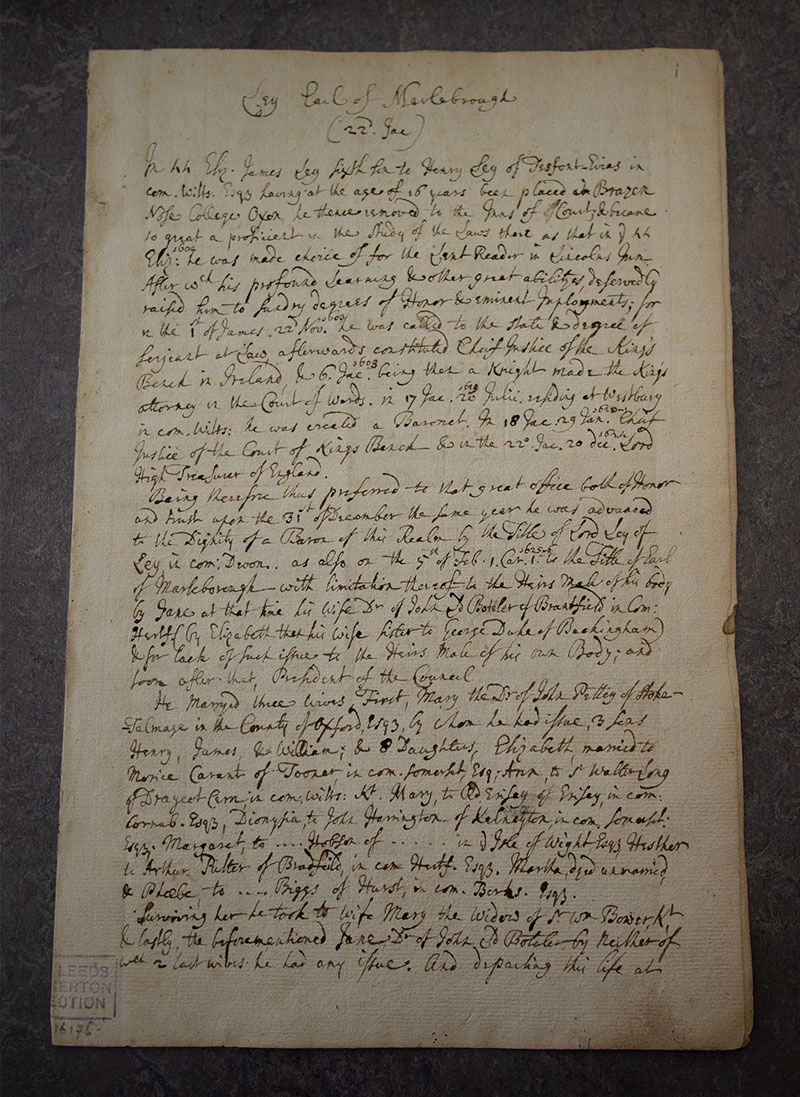 1
Ley Earl of Marlebrough
(22d. Jac)
In 44 Eliz. James Ley sixth son to Henry Ley of Tesfont-Evias in
com. Wilts. Esqz having at the age of 16 years been placed in Brazen
Nose College Oxon, he thence removed to the Inns of Court; & became
so great a proficient in the Study of the Laws there as that in ye 44
Eliz: 1602 he was made choice of for the Lent Reader in Lincolns Inn
After wch his profound Learning & other great abilities, deservedly
raised him to sundry degrees of Honor & eminent Imployments; for
in the 1st of James. 22 Nov. 1603 he was called to the state & degree of
Serjeant at Law, afterwards constituted Cheif Justice of the Kings
Bench in Ireland, & 6. Jac. 1608 being then a Knight made the Kings
attorney in the Court of Wards. in 17 Jac. 20 Julii, 1619 residing at Westbury
in com. Wilts: he was created a Baronet. In 18 Jac. 29 Jan. 1620-1 Cheif
Justice of the Court of Kings Bench & in the 22o Jac. 20 Dec. 1624 Lord
High Treasurer of England.
Being therefore thus preferred to that great office both of Honor
and trust upon the 31st of December the same year he was advanced
to the Dignity of a Baron of this Realm by the Title of Lord Ley of
Ley in com. Devon.. as also on the 5th of Feb. 1. Car. 1. 1625-6 to the Title of Earl
of Marleborough with limitation thereof to the Heirs Male of his body
by Jane at that time his Wife Dr of John Ld Boteler of Brantfield in Com:
Hertf (by Elizabeth then his Wife sister to George Duke of Buckingham)
& for lack of such issue to the Heirs Male of his own Body; and
soon after that, President of the Council
He Marryed three wives, First, Mary the Dr of John Pettey of Stoke-
-Talmage in the County of Oxford, Esqz, by whom he had issue, 3 Sons
Henry, James, & William; & 8 Daughters, Elizabeth, married to
Morice Carant of Toomer, in com. Somerset, Esq; Ann, to Sr Walter Long
of Draycot Cern, in com. Wilts: Kt. Mary, to Rd Erisey of Erisey, in com:
Cornub. Esqz, Dionysia, to John Harrington of Kelneyton in com. Somerset.
Esqz. Margaret, to .... Hobson of ...... in ye Isle of Wight Esqz Hesther
to Arthur Pulter of Bradfeild, in com Hertf. Esqz. Martha, dyed unmarried,
& Phoebe, to .... Biggs of Hurst, in com. Berks. Esqz.
Surviving her he took to wife Mary the Widow of Sr Wm Bower, Kt
& lastly, the beforementioned Jane Dr of John Ld Boteler by Neither of
wch 2 last wives he had any issue. And departing this life at
LEEDS
ERTON
OTION